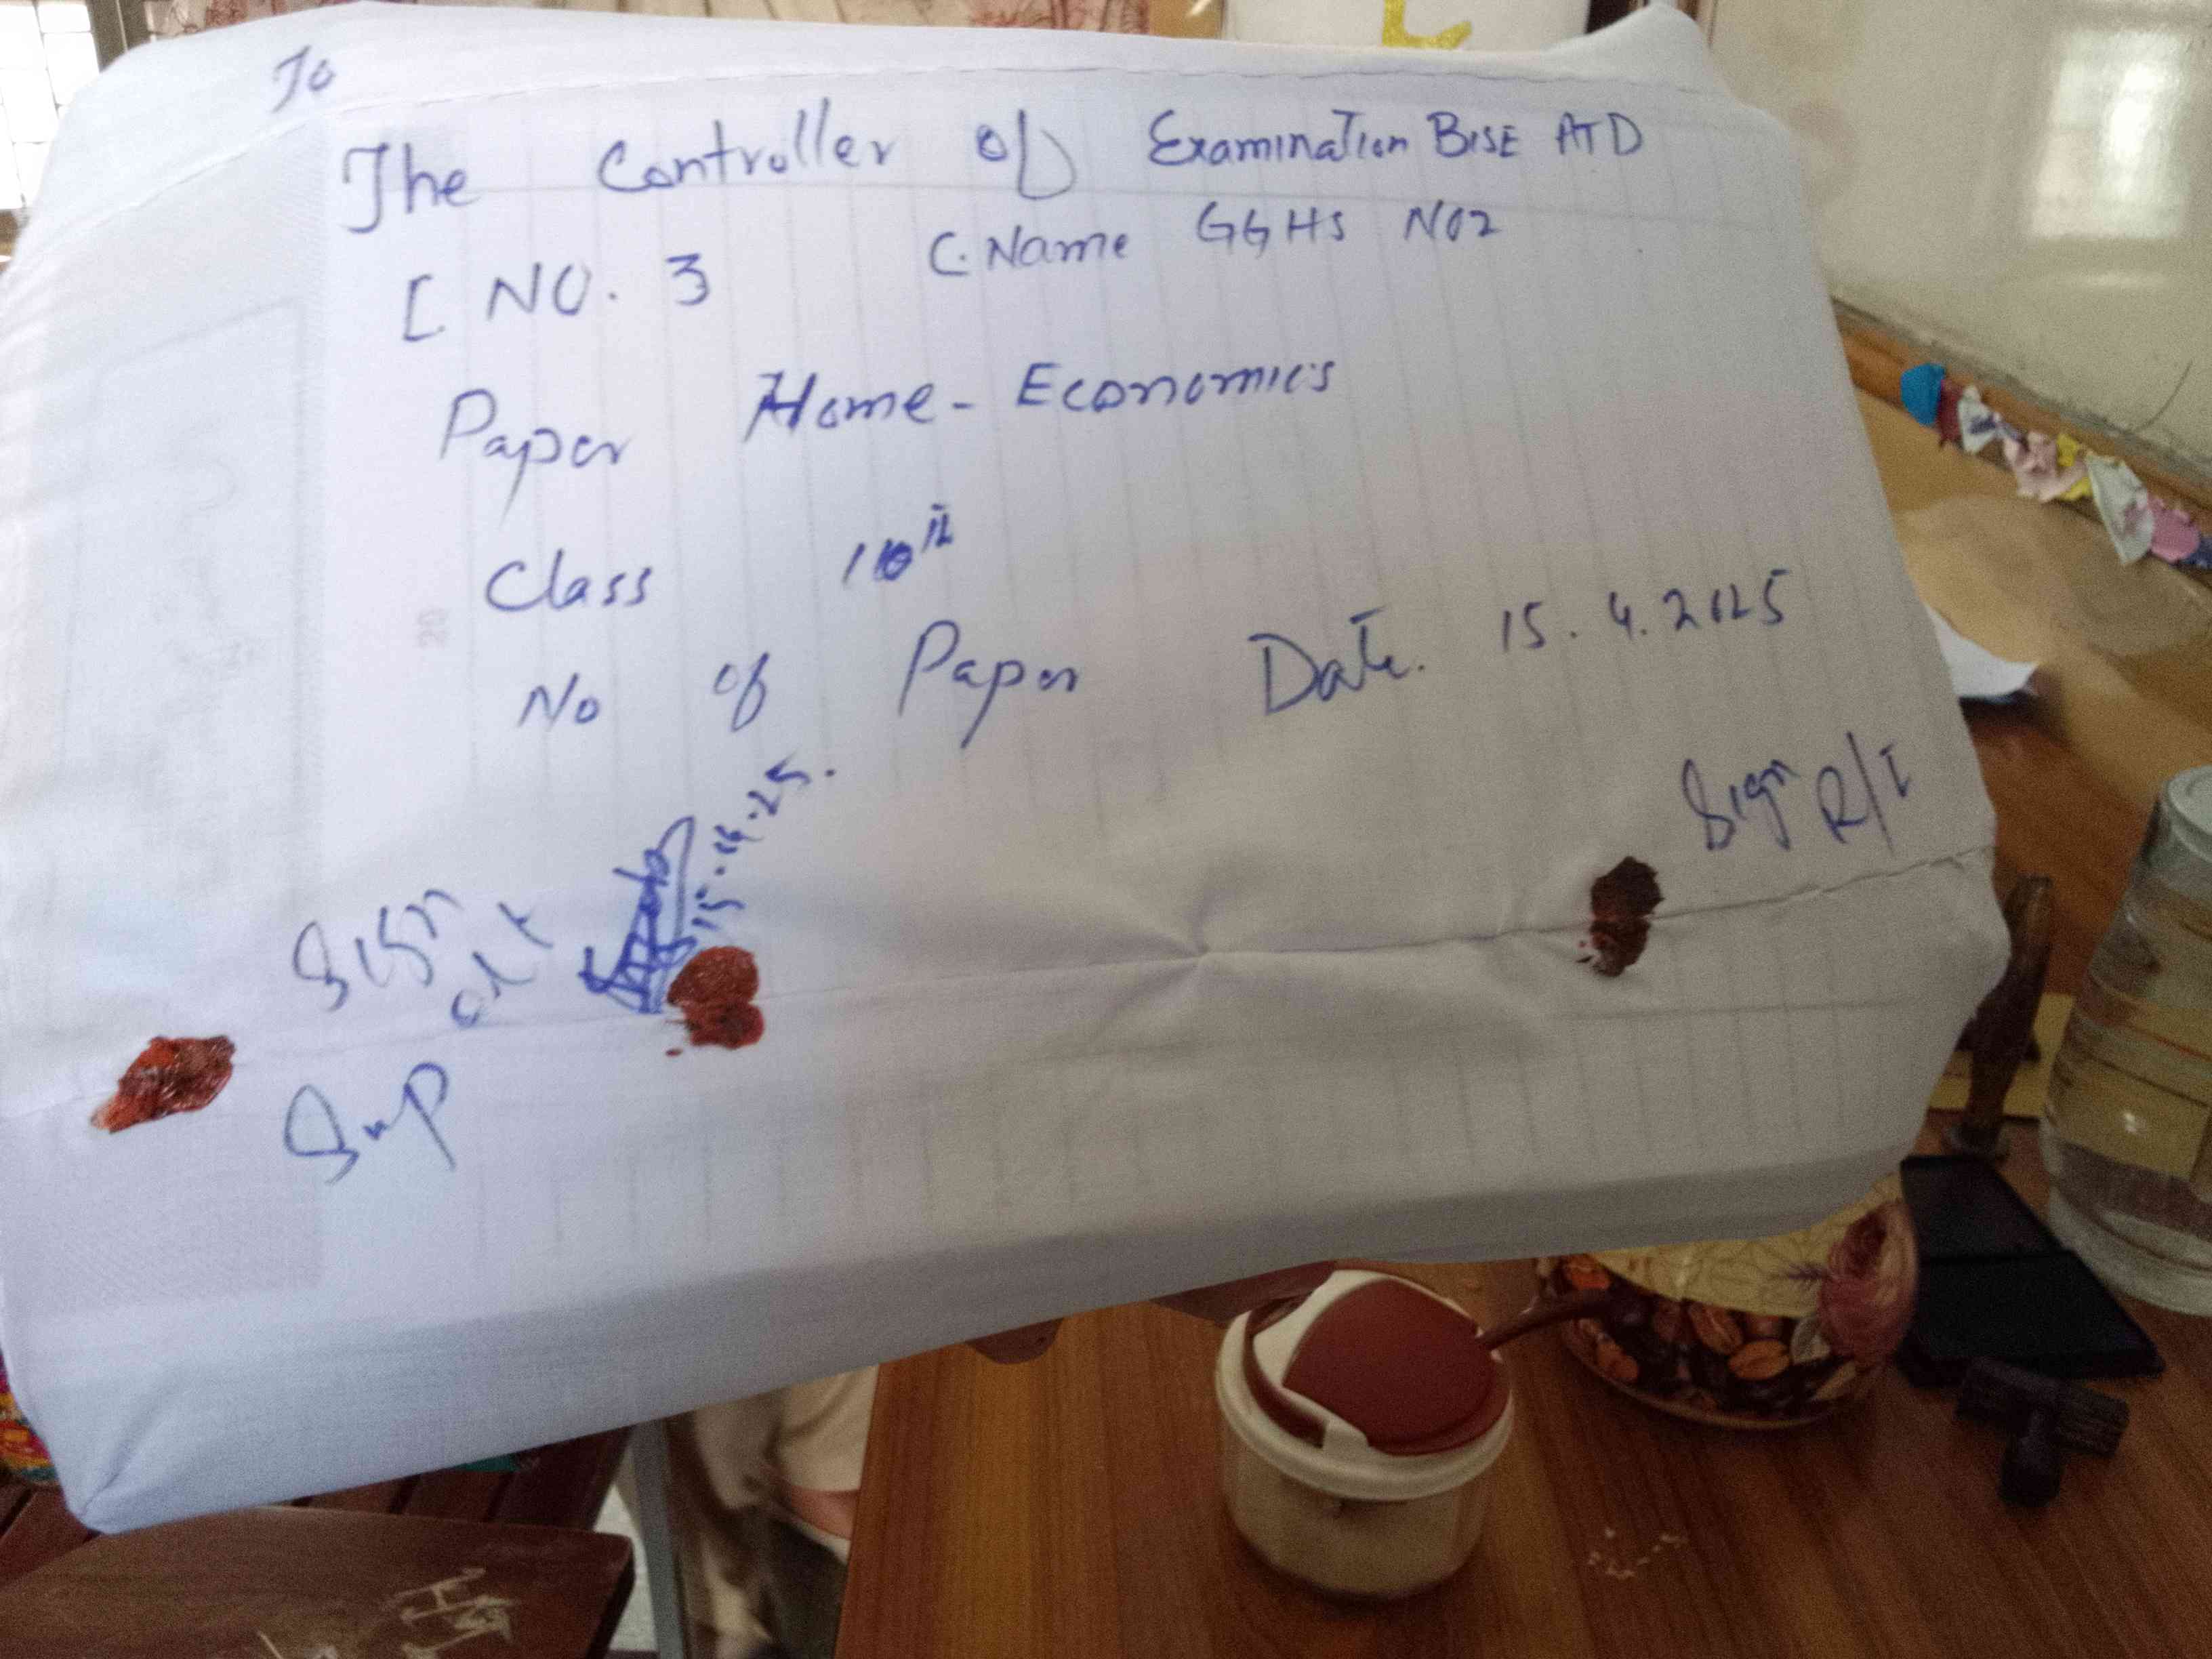 To
The Controller of Examination BISE ATD
C NO. 3 C. Name GGHS NO2
Paper Home-Economics
Class 10th
No of Paper Date. 15.4.2025
15.4.25.
Sign R/I
Sign
Sup